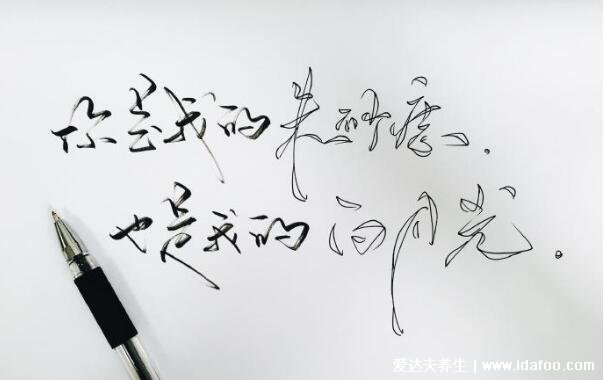 你是我的朱砂痣。
也是我的白月光。
爱达夫养生 | www.idafoo.com